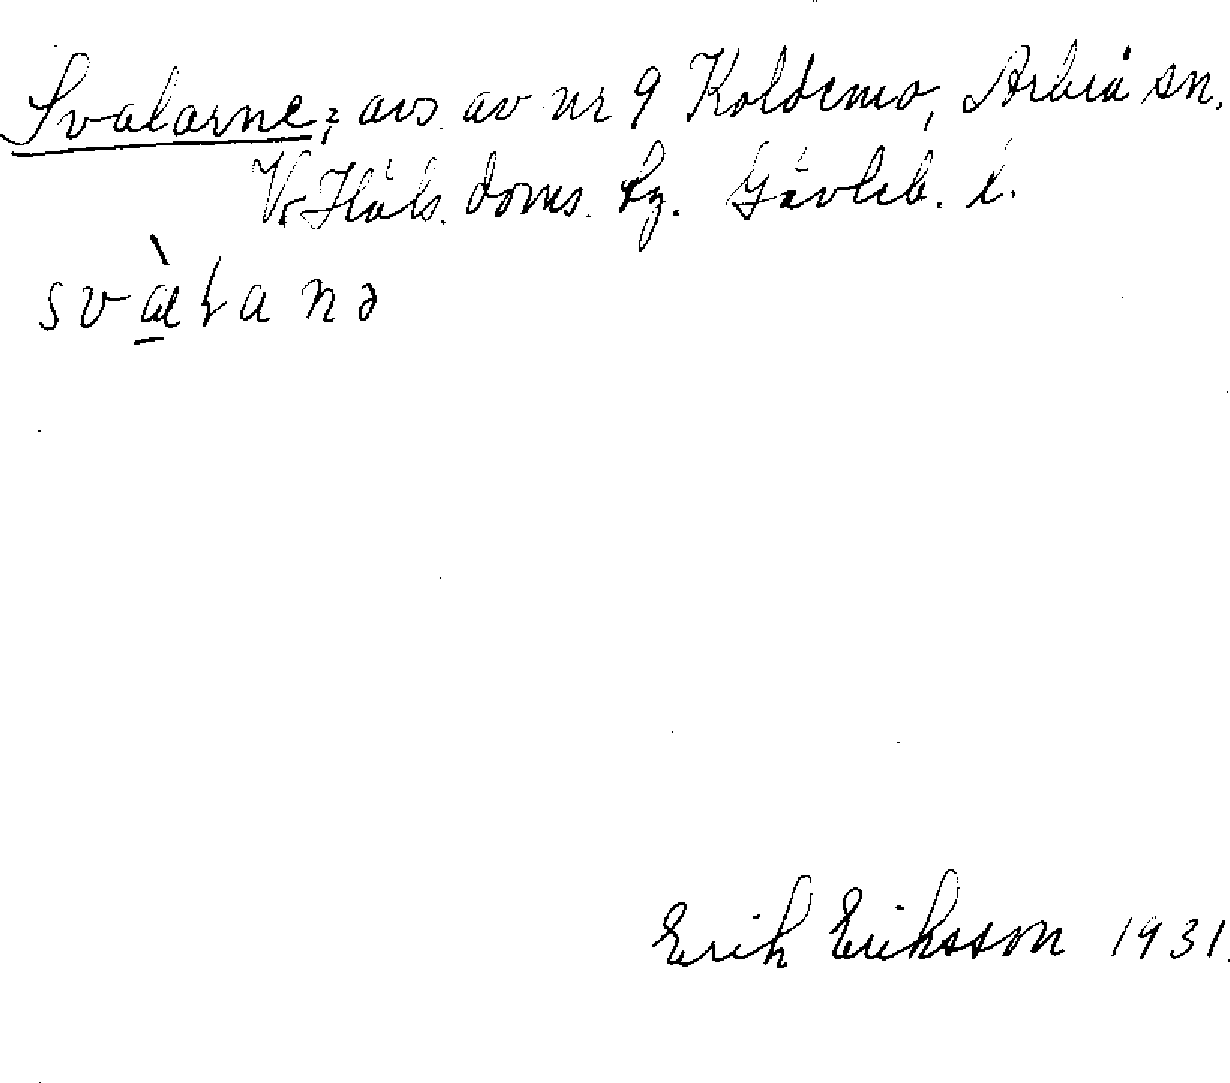 Svalarne; avs. av nr 9 Koldemo, Arbrå sn.
V. Häls. doms. tg. Gävleb. l.
Erik Eriksson 1931.